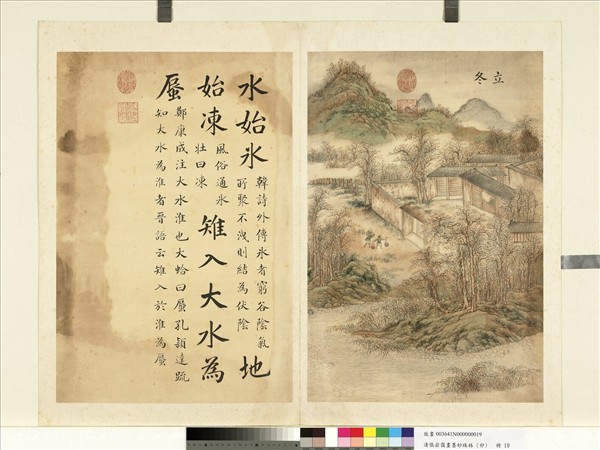 立冬
水始氷
韓詩外傳氷者窮谷陰氣
所聚不洩則結為伏陰
地
始凍
風俗通氷
壯曰凍
雉入大水為
蜃
鄭康成注大水淮也大蛤曰蜃孔穎達疏
知大水為淮者晉語云雉入於淮為蜃
故畫 003641N000000019
清張若靄畫墨妙珠林(卯) 冊 19